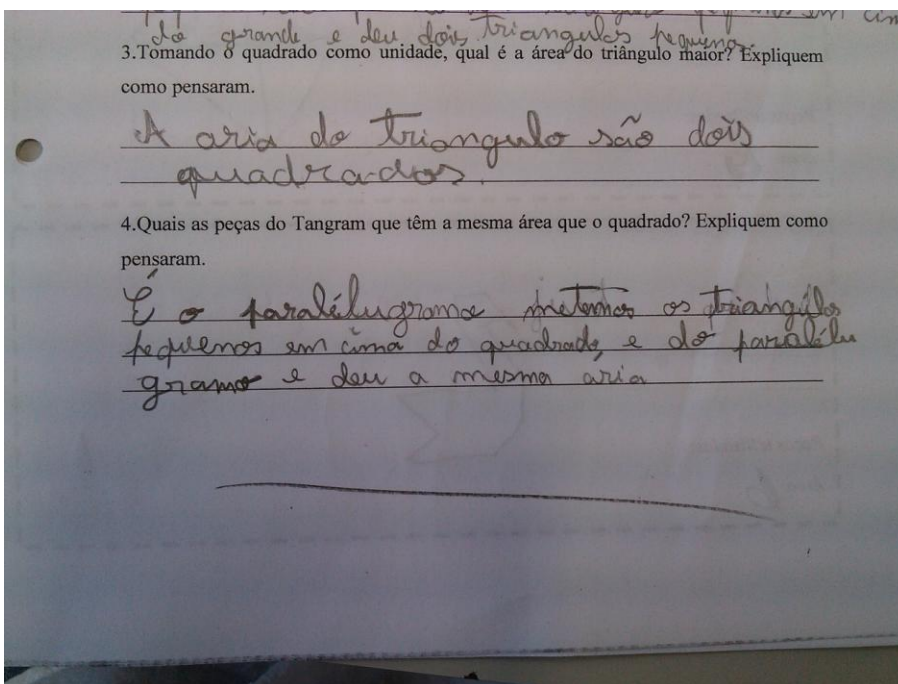 da grande e deu dois triangulos pequenos
3.Tomando o quadrado como unidade, qual é a área do triângulo maior? Expliquem
como pensaram.
A aria do triangulo são dois
quadrados.
4.Quais as peças do Tangram que têm a mesma área que o quadrado? Expliquem como
pensaram.
É o paralélugramo metemos os triangulos
pequenos em cima do quadrado, e do paralélu
gramo e deu a mesma aria